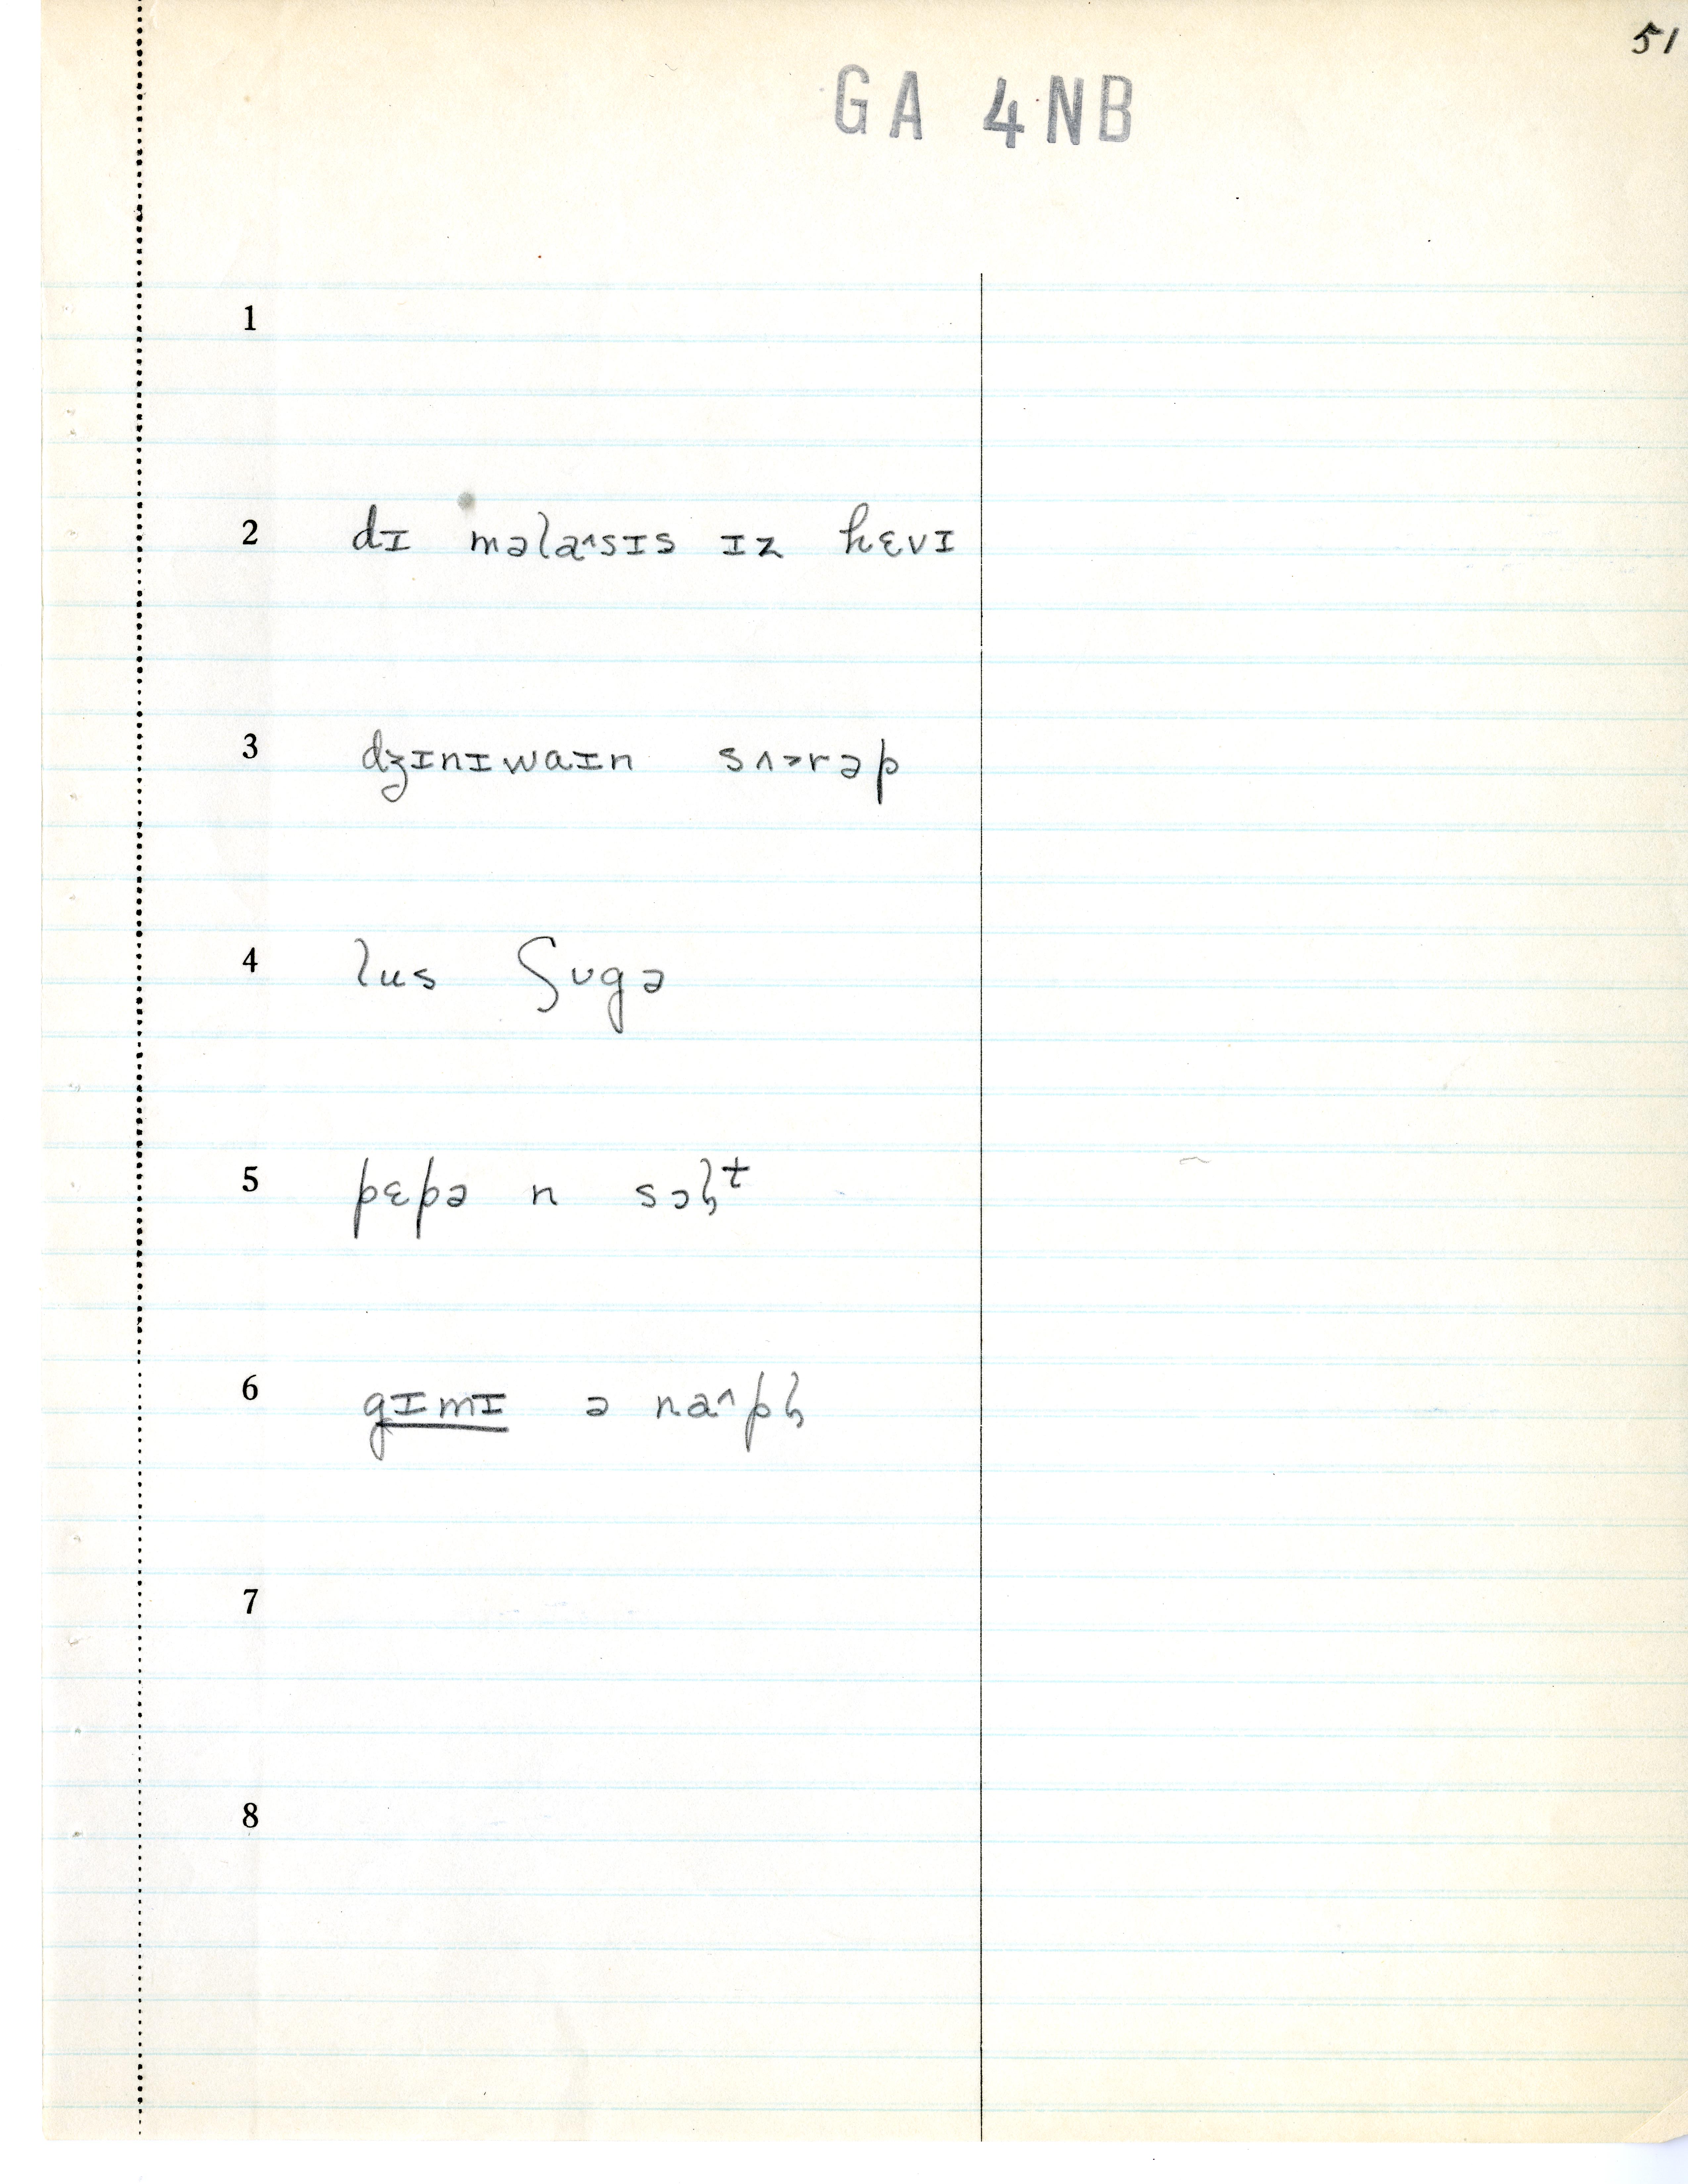 51
GA 4NB
1
2 dɪ məla˄sɪs ɪz hɛvɪ
3 dʒɪnɪwaɪn sʌ˃rəp
4 lus ʃʊgə
5 pɛpə n sɔl̩ᵗ
6 gɪmɪ ə na˄pl̩
7
8